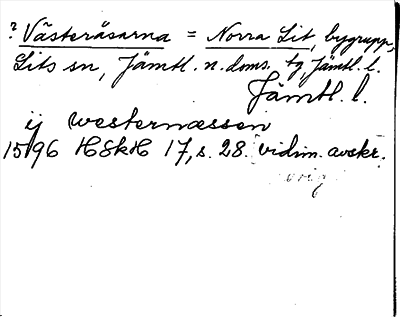 ? Västeråsarna = Norra Lit, bygrupp,
Lits sn, Jämtl. n. doms. tg, Jämtl. l.
Jämtl. l.
ij westernæssen
1596 HSkH 17, s. 28. vidim. avskr.
orig